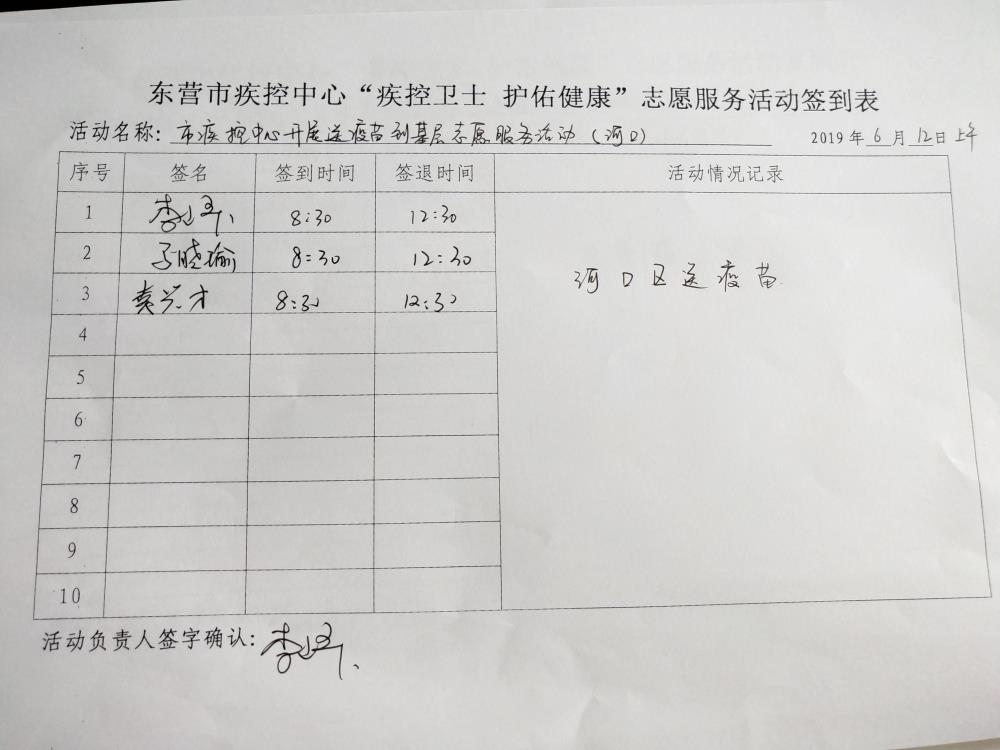 东营市疾控中心“疾控卫士 护佑健康”志愿服务活动签到表
活动名称：市疾控中心开展送疫苗到基层志愿服务活动（河口） 2019年6月12日上午
序号 签名 签到时间 签退时间 活动情况记录
1 李 8:30 12:30
2 晓瑜 8:30 12:30
河口区送疫苗
3 袁兴才 8:30 12:30
4
5
6
7
8
9
10
活动负责人签字确认：李